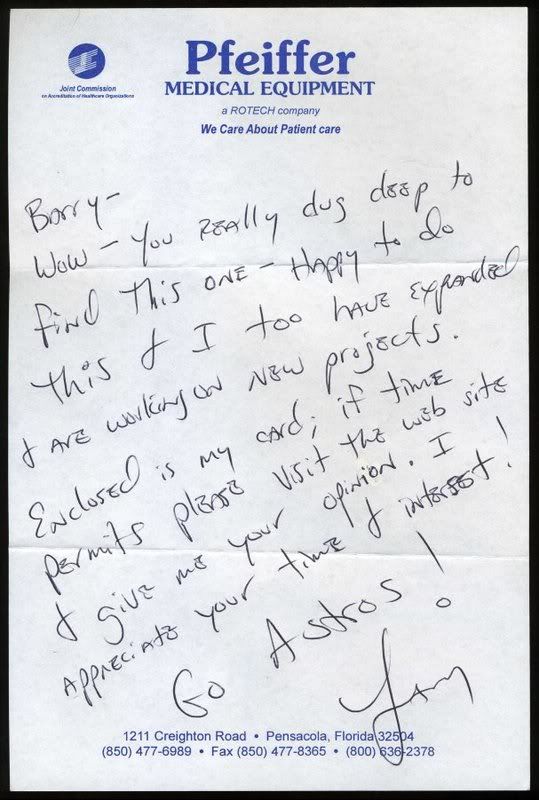 Joint Commission
on Accreditation of Healthcare Organizations
Pfeiffer
MEDICAL EQUIPMENT
a ROTECH company
We Care About Patient care
Barry-
Wow - You REally dug deep to
find This ONE - Happy to do
This & I too HAVE Expanded
& ARE working ON NEW projects.
Enclosed is my card; if time
permits plEASE Visit the web sitE
& givE me your opinion. I
AppreciatE your timE & interest!
Go Astros!
1211 Creighton Road • Pensacola, Florida 32504
(850) 477-6989 • Fax (850) 477-8365 • (800) 636-2378